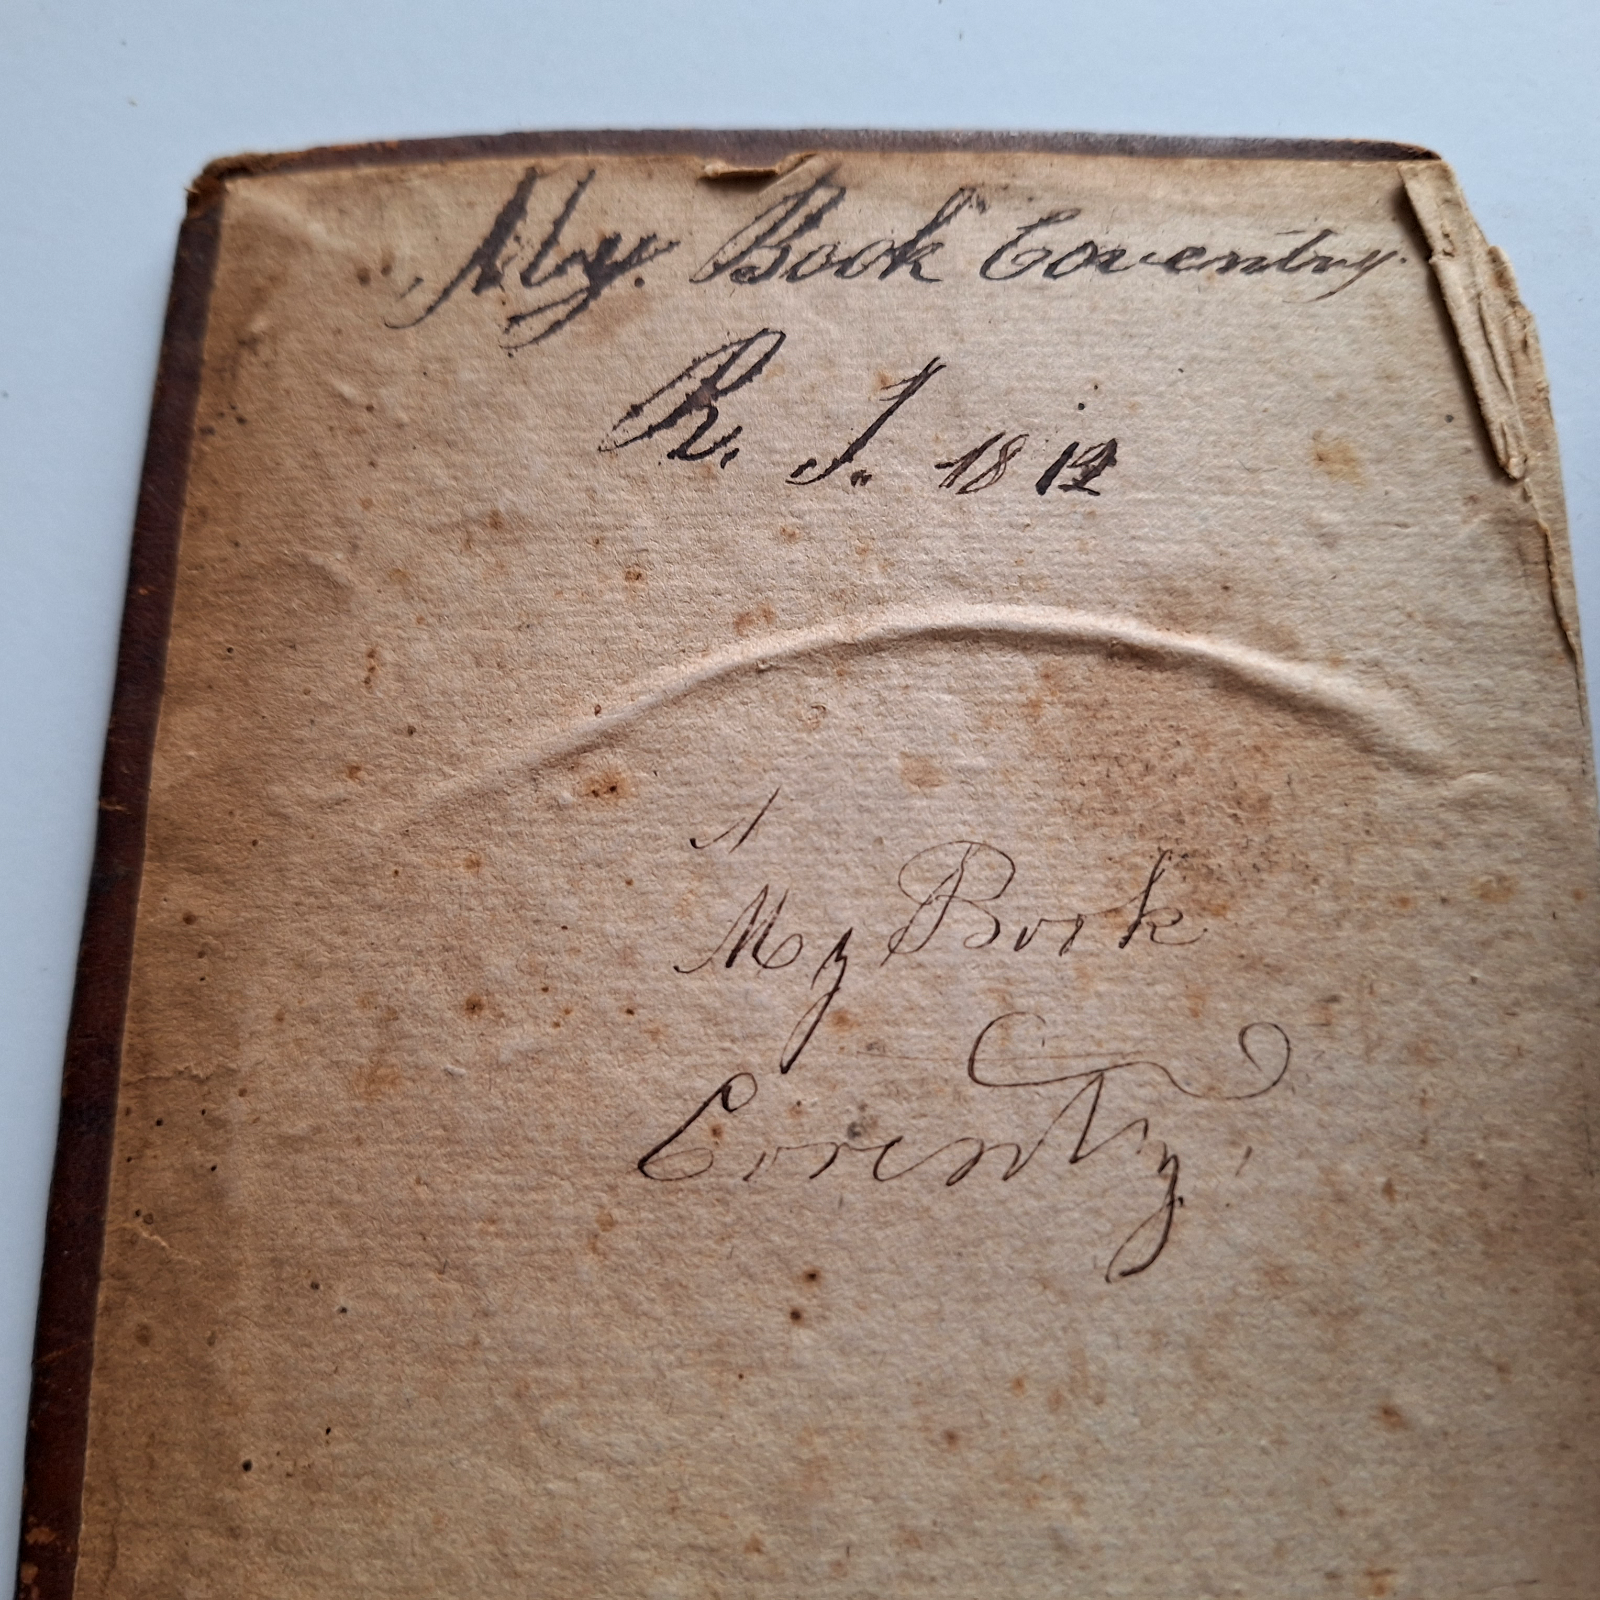 My. Book Coventry.
R. I. 1812
My Book
Coventry,